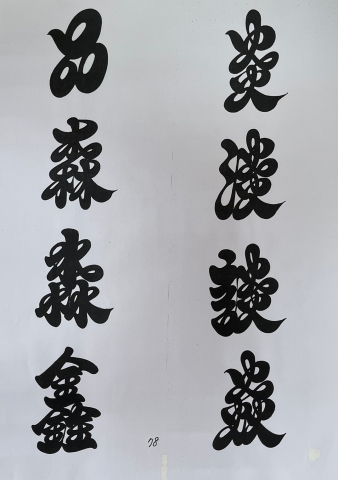 炎淡談焱
品森淼鑫
78